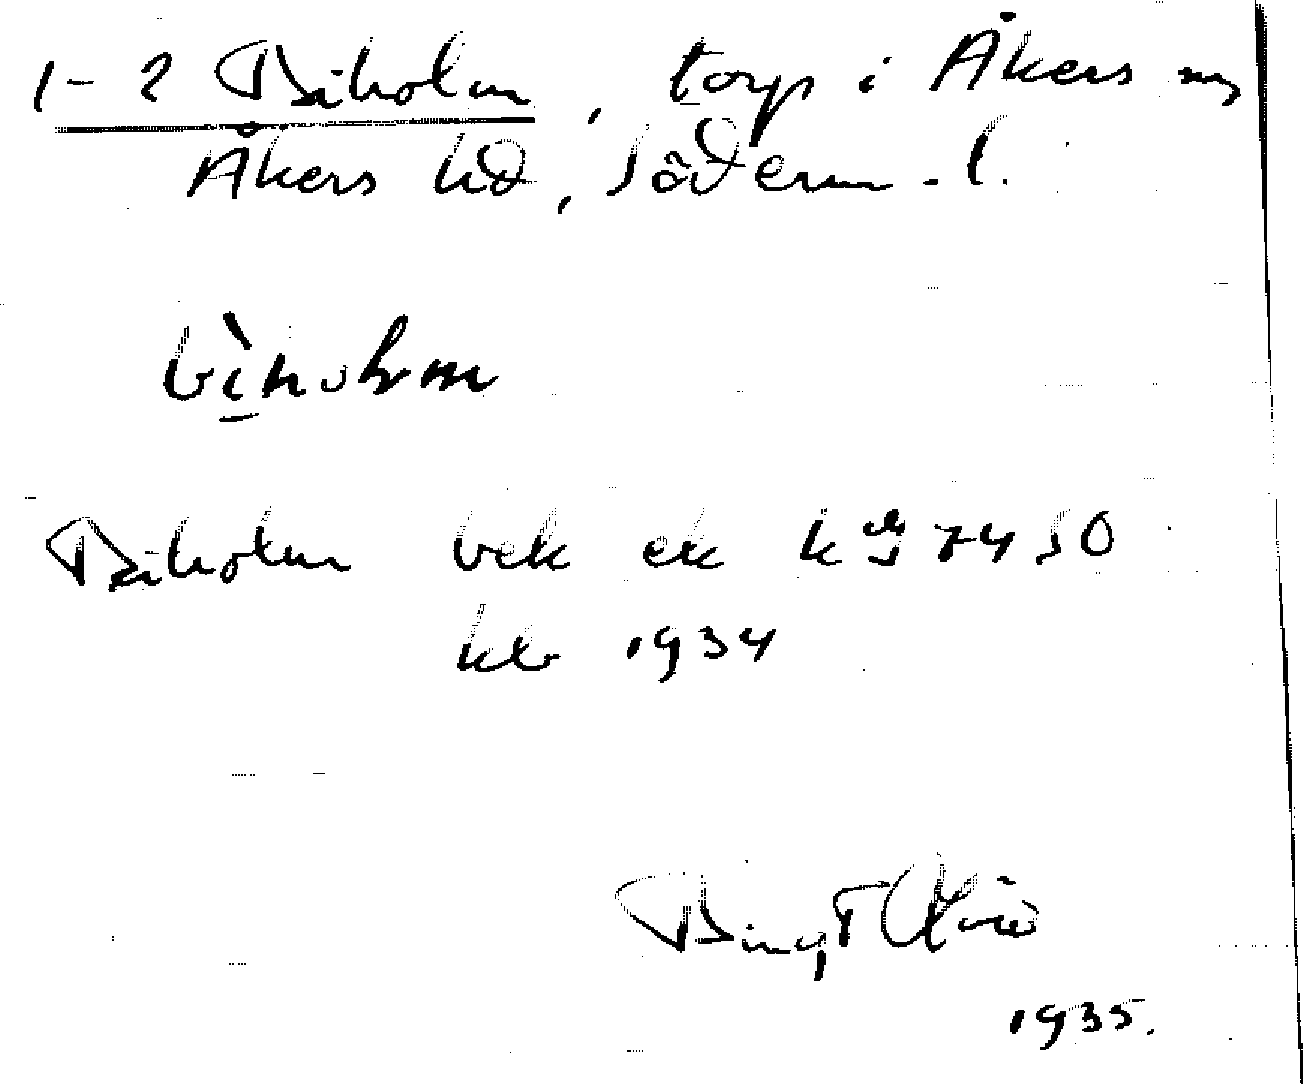 1-2 Biholm, torp i Åkers sn,
Åkers hd, Söderm.l.
biholm
Biholm bek ek k 7450
kb 1934
Bengt
1935.